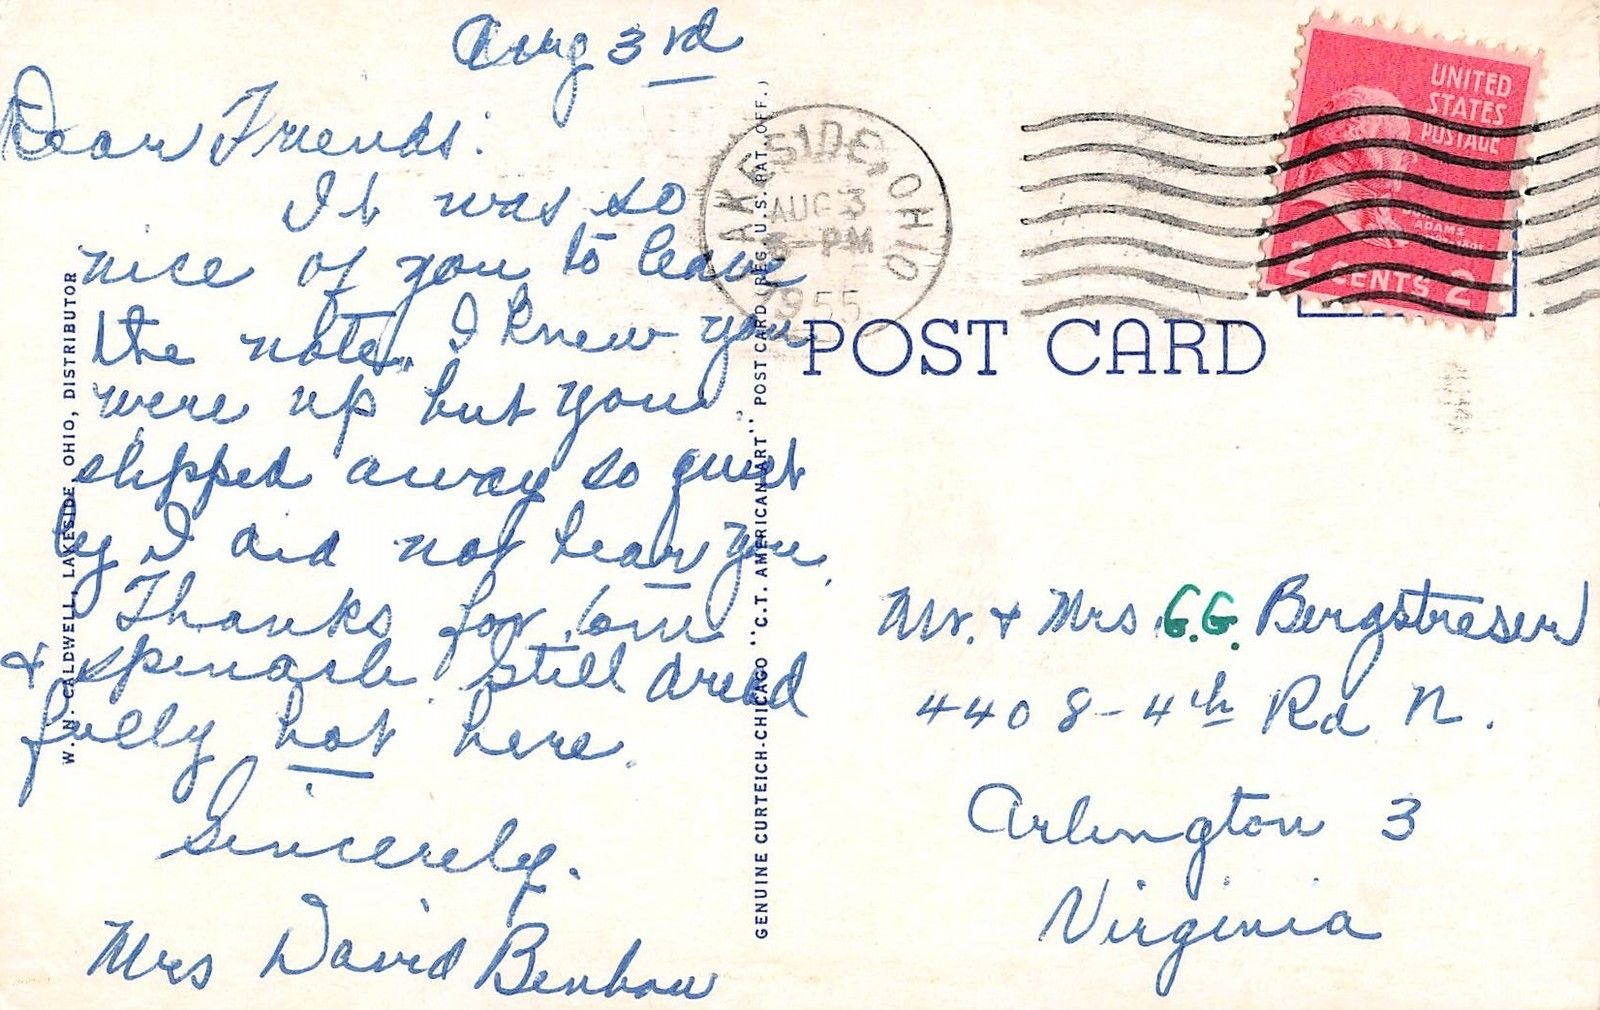 Aug 3rd
Dear Friends:
It was so
nice of you to leave
the note. I knew you
were up but you
slipped away so quiet
ly I did not hear you.
Thanks for
& spinach. Still dread
fully hot here.
Sincerely.
Mrs David Benbow
W. N. CALDWELL, LAKESIDE, OHIO, DISTRIBUTOR
GENUINE CURTEICH-CHICAGO "C.T. AMERICAN ART" POST CARD (REG. U.S. PAT. OFF.)
LAKESIDE, OHIO
AUG 3
PM
1955
UNITED
STATES
POSTAGE
ADAMS
2 CENTS 2
POST CARD
Mr. & Mrs G.G. Bergstresser
4408-4th Rd N.
Arlington 3
Virginia